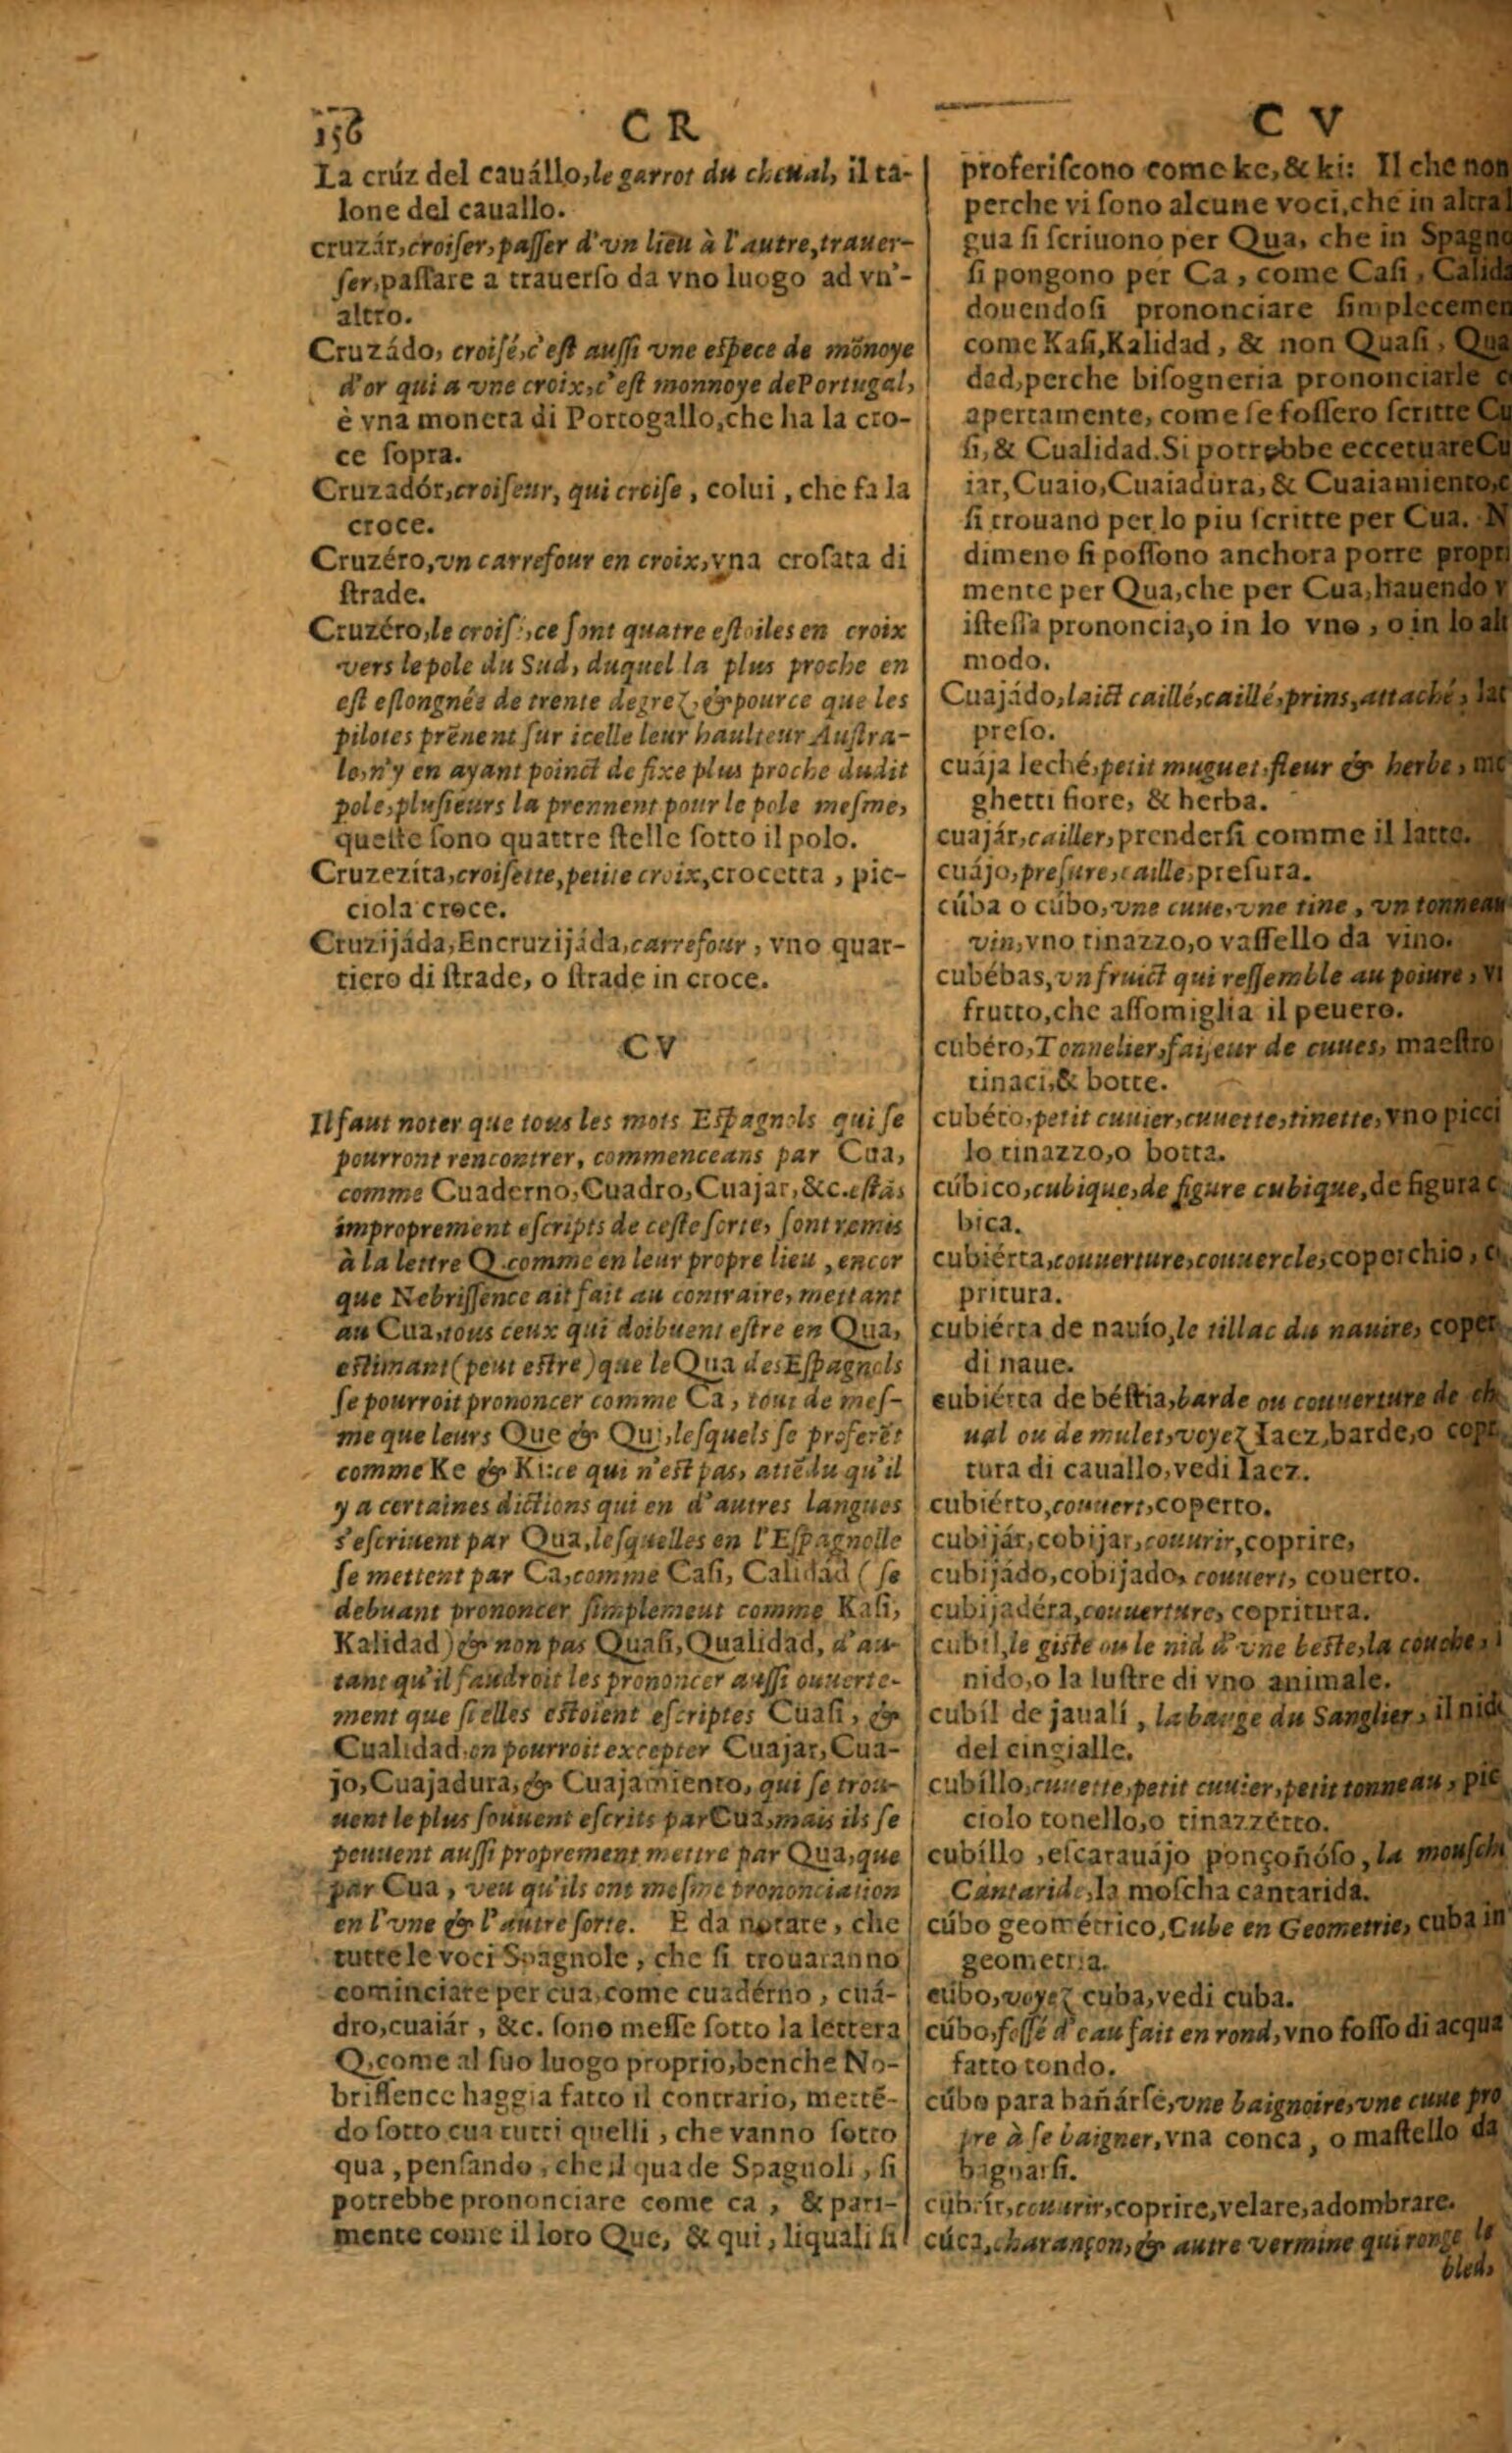 158
C R
La crúz del cauállo, le garrot du cheual, il ta-
lone del cauallo.
cruzár, croiſer, paſſer d'vn lieu à l'autre, trauer-
ſer, paſſare a trauerſo da vno luogo ad vn'-
altro.
Cruzádo, croiſé, c'eſt auſſi vne eſpece de mõnoye
d'or qui a vne croix, c'eſt monnoye de Portugal,
è vna moneta di Portogallo, che ha la cro-
ce ſopra.
Cruzadór, croiſeur, qui croiſe, colui, che fa la
croce.
Cruzéro, vn carrefour en croix, vna croſata di
ſtrade.
Cruzéro, le croiſ, ce ſont quatre eſtoiles en croix
vers le pole du Sud, duquel la plus proche en
eſt eſlongnée de trente degrez, & pource que les
pilotes prẽnent ſur icelle leur haulteur Auſtra-
le, n'y en ayant poinct de fixe plus proche dudit
pole, pluſieurs la prennent pour le pole meſme,
queſte ſono quattre ſtelle ſotto il polo.
Cruzezíta, croiſette, petite croix, crocetta, pic-
ciola croce.
Cruzijáda, Encruzijáda, carrefour, vno quar-
tiero di ſtrade, o ſtrade in croce.
C V
Il faut noter que tous les mots Eſpagnols qui ſe
pourront rencontrer, commenceans par Cua,
comme Cuaderno, Cuadro, Cuajar, &c. eſtãs
improprement eſcripts de ceſte ſorte, ſont remis
à la lettre Q. comme en leur propre lieu, encor
que Nebriſſence ait fait au contraire, mettant
au Cua, tous ceux qui doibuent eſtre en Qua,
eſtimant (peut eſtre) que le Qua des Eſpagnols
ſe pourroit prononcer comme Ca, tout de meſ-
me que leurs Que & Qui, leſquels ſe proferẽt
comme Ke & Ki: ce qui n'eſt pas, attẽdu qu'il
y a certaines dictions qui en d'autres langues
s'eſcriuent par Qua, leſquelles en l'Eſpagnolle
ſe mettent par Ca, comme Caſi, Calidád (ſe
debuant prononcer ſimplement comme Kaſi,
Kalidad) & non pas Quaſi, Qualidad, d'au-
tant qu'il faudroit les prononcer auſſi ouuerte-
ment que ſi elles eſtoient eſcriptes Cuaſi, &
Cualidad. on pourroit excepter Cuajar, Cua-
jo, Cuajadura, & Cuajamiento, qui ſe trou-
uent le plus ſouuent eſcrits par Cua, mais ils ſe
peuuent auſſi proprement mettre par Qua, que
par Cua, veu qu'ils ont meſme prononciation
en l'vne & l'autre ſorte. E da notare, che
tutte le voci Spagnole, che ſi trouaranno
cominciare per cua, come cuadérno, cuá-
dro, cuaiár, &c. ſono meſſe ſotto la lettera
Q, come al ſuo luogo proprio, benche No-
briſſence haggia fatto il contrario, mettẽ-
do ſotto cua tutti quelli, che vanno ſotto
qua, penſando, che il qua de Spagnoli, ſi
potrebbe prononciare come ca, & pari-
mente come il loro Que, & qui, liquali ſi
C V
proferiſcono come ke, & ki: Il che non
perche vi ſono alcune voci, che in altra l
gua ſi ſcriuono per Qua, che in Spagno
ſi pongono per Ca, come Caſi, Calida
douendoſi prononciare ſimplecemen
come Kaſi, Kalidad, & non Quaſi, Qua
dad, perche biſogneria prononciarle c
apertamente, come ſe foſſero ſcritte Cu
ſi, & Cualidad. Si potrebbe eccetuare Cu
iar, Cuaio, Cuaiadura, & Cuaiamiento, c
ſi trouano per lo piu ſcritte per Cua. N
dimeno ſi poſſono anchora porre propri
mente per Qua, che per Cua, hauendo v
iſteſſa prononcia, o in lo vno, o in lo alt
modo.
Cuajádo, laict caillé, caillé, prins, attaché, lat
preſo.
cuája leché, petit muguet, fleur & herbe, mu
ghetti fiore, & herba.
cuajár, cailler, prenderſi comme il latte.
cuájo, preſure, caille, preſura.
cúba o cúbo, vne cuue, vne tine, vn tonneau
vin, vno tinazzo, o vaſſello da vino.
cubébas, vn fruict qui reſſemble au poiure, vi
frutto, che aſſomiglia il peuero.
cubéro, Tonnelier, faiſeur de cuues, maeſtro
tinaci, & botte.
cubéto, petit cuuier, cuuette, tinette, vno picci
lo tinazzo, o botta.
cúbico, cubique, de figure cubique, de figura c
bica.
cubiérta, couuerture, couuercle, coperchio, c
pritura.
cubiérta de nauío, le tillac du nauire, coper
di naue.
cubiérta de béſtia, barde ou couuerture de ch
ual ou de mulet, voyez Iaez, barde, o copr
tura di cauallo, vedi Iaez.
cubiérto, couuert, coperto.
cubijár, cobijar, couurir, coprire,
cubijádo, cobijado, couuert, couerto.
cubijadéra, couuerture, copritura.
cubíl, le giſte ou le nid d'vne beſte, la couche, i
nido, o la luſtre di vno animale.
cubíl de jaualí, la bauge du Sanglier, il nid
del cingialle.
cubíllo, cuuette, petit cuuier, petit tonneau, pic
ciolo tonello, o tinazzétto.
cubíllo, eſcarauájo ponçoñóſo, la mouſche
Cantaride, la moſcha cantarida.
cúbo geométrico, Cube en Geometrie, cuba in
geometria.
cúbo, voyez cuba, vedi cuba.
cúbo, foſſé d'eau fait en rond, vno foſſo di acqua
fatto tondo.
cúbo para bañárſé, vne baignoire, vne cuue pro
pre à ſe baigner, vna conca, o maſtello da
bagnarſi.
cubrír, couurir, coprire, velare, adombrare.
cúca, charançon, & autre vermine qui ronge le
bled,